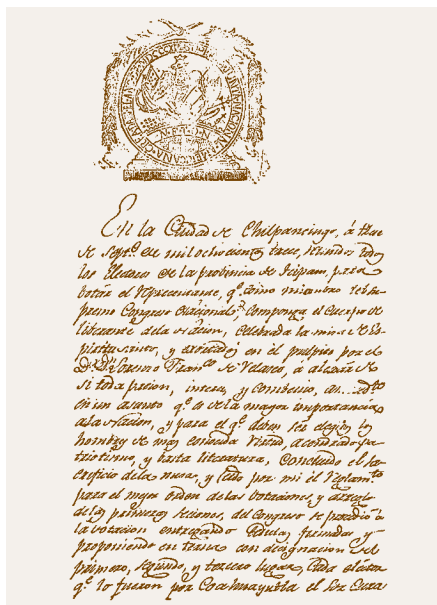 En la Ciudad de Chilpancingo, á trece
de Sept.e de mil ochocient.s trece, reunidos todos
los Electores de la provincia de Tecpam, para
botár el Representante, q.e como miembro del Su-
premo Congreso Nacional, componga el cuerpo de-
liberante de la Nacion, celebrada la misa de Es-
piritu Santo, y exôrtado en el pulpito por el
D.r D. Lorenzo Fran.co de Velasco, á alejár de
sí toda pacion, interes, y combenio,
en un asunto q.e es de la mayor importancia
a la Nacion, y para el q.e deben ser elegidos los
hombres de más conocida virtud, acendrado pa-
triotismo, y basta literatura, Concluido el Sa-
crificio de la misa, y leido por mi el Reglam.to
para el mejor orden de las botaciones, y arreglo
de las primeras Seciones, del Congreso se prosedió á
la botacion entregando Cedulas firmadas y
proponiendo en terna con designacion del
primero, segundo, y tercero lugar, Cada elector
q.e lo fueron por Coahuayutla el Sor Cura